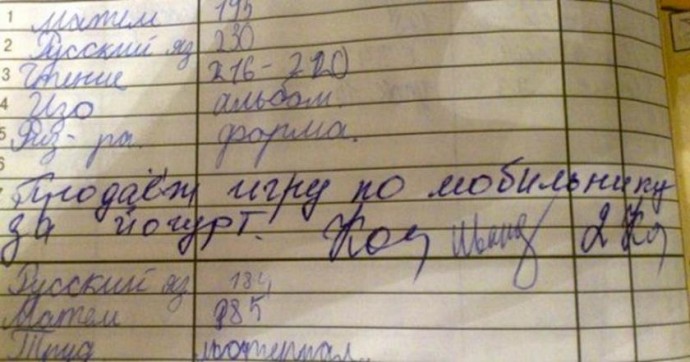 1 Матем 195
2 Русский яз 230
3 Чтение 216-220
4 Изо альбом.
5 Физ-ра. форма.
6
Продаёт игру по мобильнику
за йогурт.
Русский яз 184
Матем 185
Труд материал.